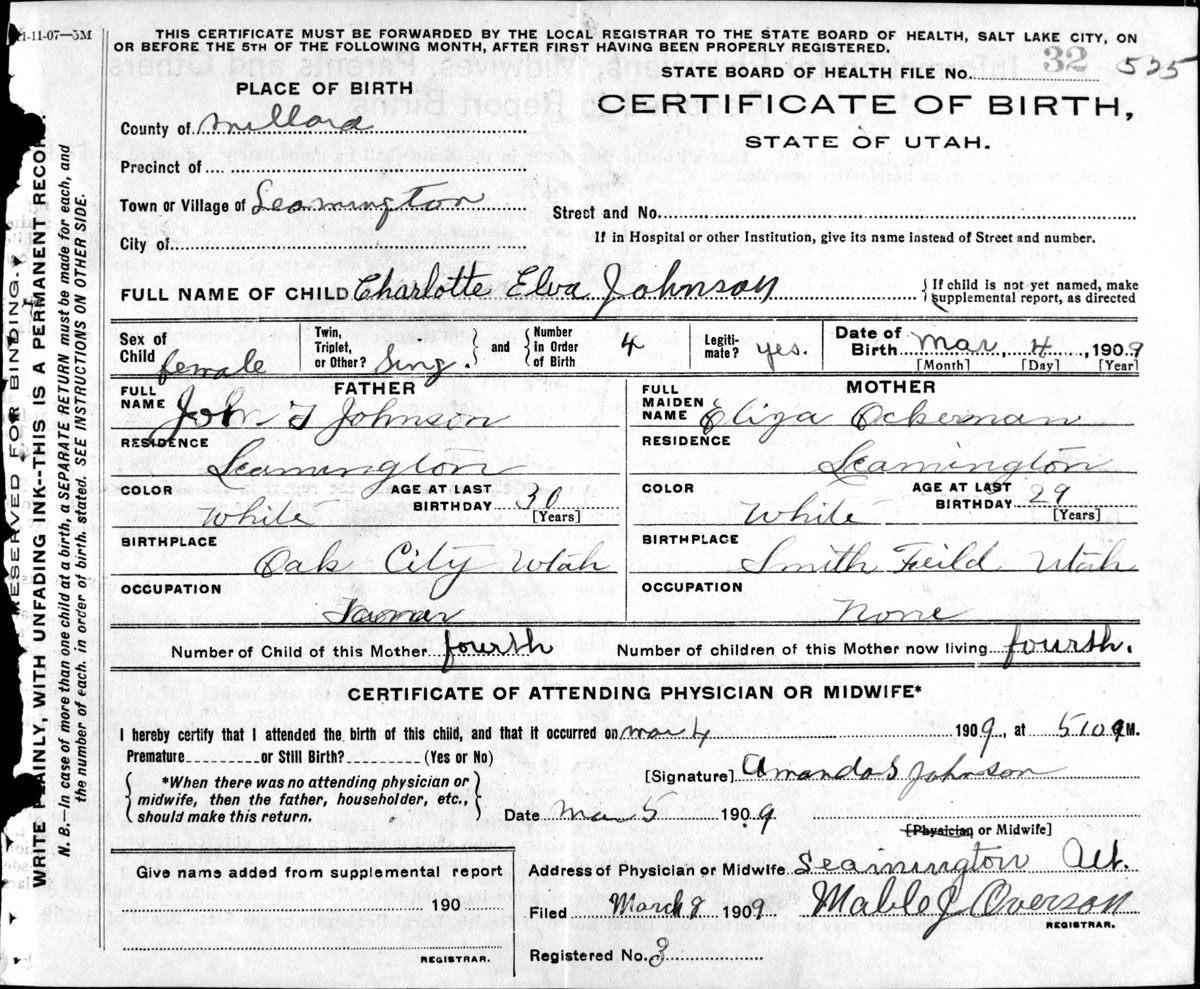 11-11-07—5M
THIS CERTIFICATE MUST BE FORWARDED BY THE LOCAL REGISTRAR TO THE STATE BOARD OF HEALTH, SALT LAKE CITY, ON
OR BEFORE THE 5TH OF THE FOLLOWING MONTH, AFTER FIRST HAVING BEEN PROPERLY REGISTERED.
STATE BOARD OF HEALTH FILE No. 32 525
PLACE OF BIRTH
CERTIFICATE OF BIRTH,
STATE OF UTAH.
County of Millard
Precinct of
Town or Village of Leamington
Street and No.
City of
If in Hospital or other Institution, give its name instead of Street and number.
FULL NAME OF CHILD Charlotte Elva Johnson
{If child is not yet named, make
supplemental report, as directed
Sex of Child female
Twin, Triplet, or Other? Sing. } and { Number in Order of Birth 4
Legiti-mate? yes.
Date of Birth Mar, 4, 1909
[Month] [Day] [Year]
FATHER
FULL NAME John T Johnson
RESIDENCE
Leamington
COLOR White
AGE AT LAST BIRTHDAY 30 [Years]
BIRTHPLACE
Oak City Utah
OCCUPATION
Farmer
MOTHER
FULL MAIDEN NAME Eliza Ockerman
RESIDENCE
Leamington
COLOR White
AGE AT LAST BIRTHDAY 29 [Years]
BIRTHPLACE
Smith Feild Utah
OCCUPATION
None
Number of Child of this Mother fourth Number of children of this Mother now living fourth.
CERTIFICATE OF ATTENDING PHYSICIAN OR MIDWIFE*
I hereby certify that I attended the birth of this child, and that it occurred on mar 4 1909, at 510 M.
Premature or Still Birth? (Yes or No)
{*When there was no attending physician or
midwife, then the father, householder, etc.,
should make this return.}
[Signature] Amanda S Johnson
Date Mar 5 1909
[Physician or Midwife]
Address of Physician or Midwife Leamington Ut.
Give name added from supplemental report
190
REGISTRAR.
Filed March 9 1909 Mable J Overson
REGISTRAR.
Registered No. 3
RESERVED FOR BINDING.
WRITE PLAINLY, WITH UNFADING INK--THIS IS A PERMANENT RECORD.
N. B.—In case of more than one child at a birth, a SEPARATE RETURN must be made for each, and
the number of each, in order of birth, stated. SEE INSTRUCTIONS ON OTHER SIDE.